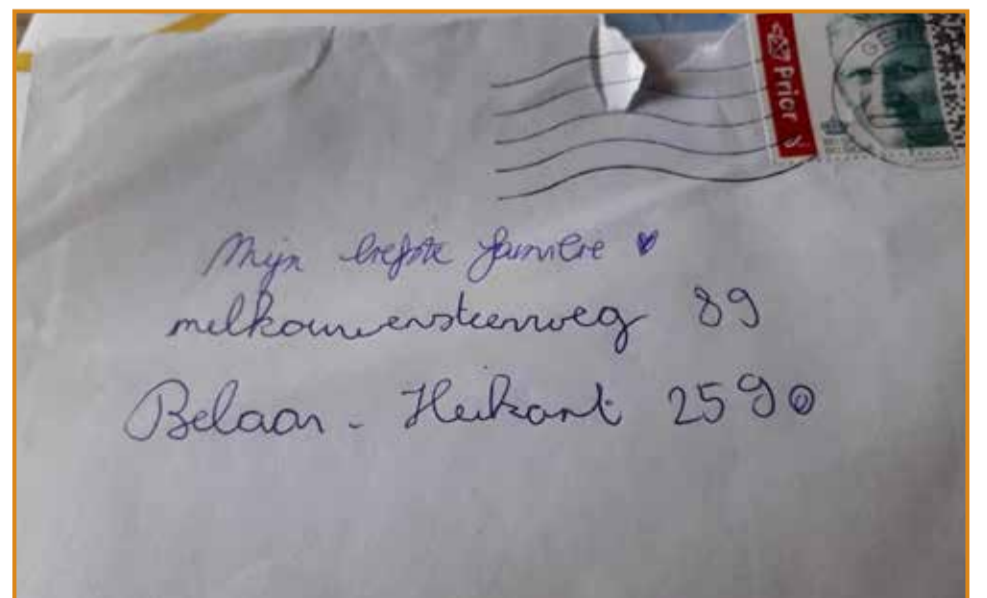 GE
Prior
Mijn liefste familie ♥
melkouwensteenweg 89
Belaar - Heikant 2590